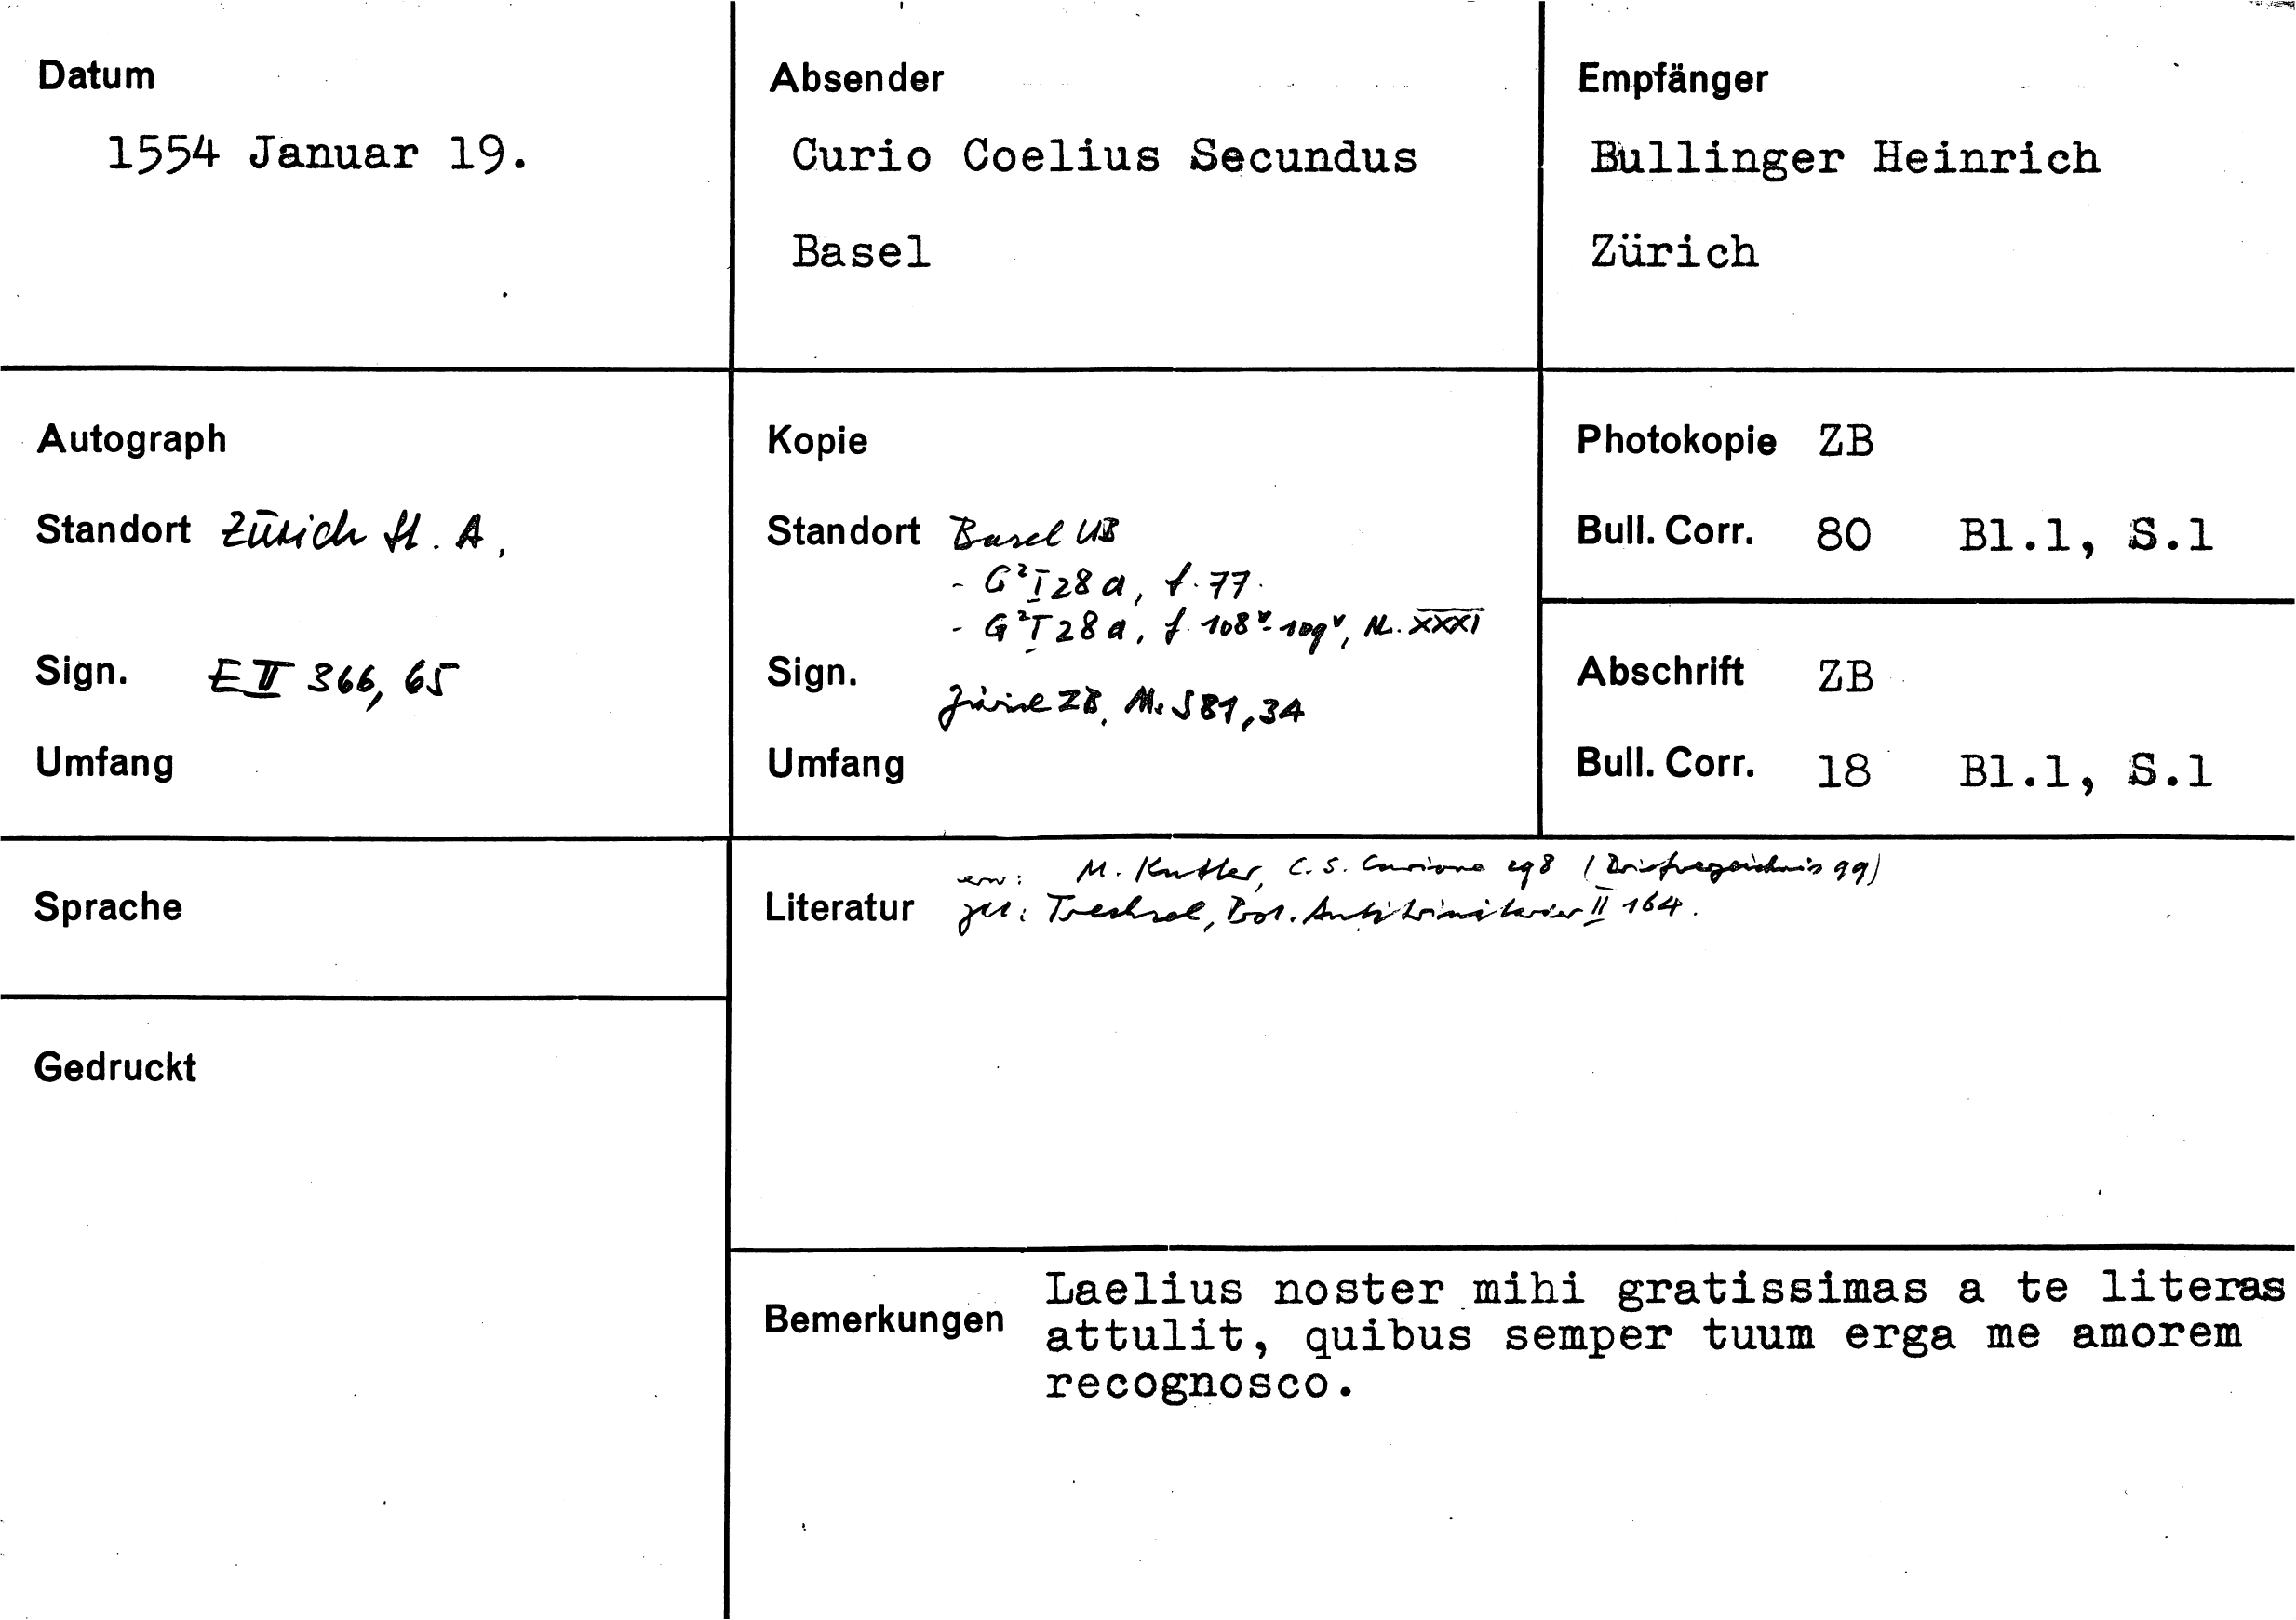 Datum
1554 Januar 19.
Absender
Curio Coelius Secundus
Basel
Empfänger
Bullinger Heinrich
Zürich
Autograph
Standort Zürich St. A.
Sign. E II 366, 65
Umfang
Kopie
Standort Basel UB
- G² I 28 a, f. 77.
- G² I 28 a, f. 108ᵛ-109ᵛ, Nr. XXXI
Sign.
Zürich ZB, Ms S 81, 34
Umfang
Photokopie ZB
Bull. Corr. 80 Bl.1, S.1
Abschrift ZB
Bull. Corr. 18 Bl.1, S.1
Sprache
Gedruckt
erw: M. Kutter, C. S. Curione 298 (Briefverzeichnis 99)
Literatur zit: Trechsel, Prot. Antitrinitarier II 164.
Bemerkungen
Laelius noster mihi gratissimas a te literas
attulit, quibus semper tuum erga me amorem
recognosco.